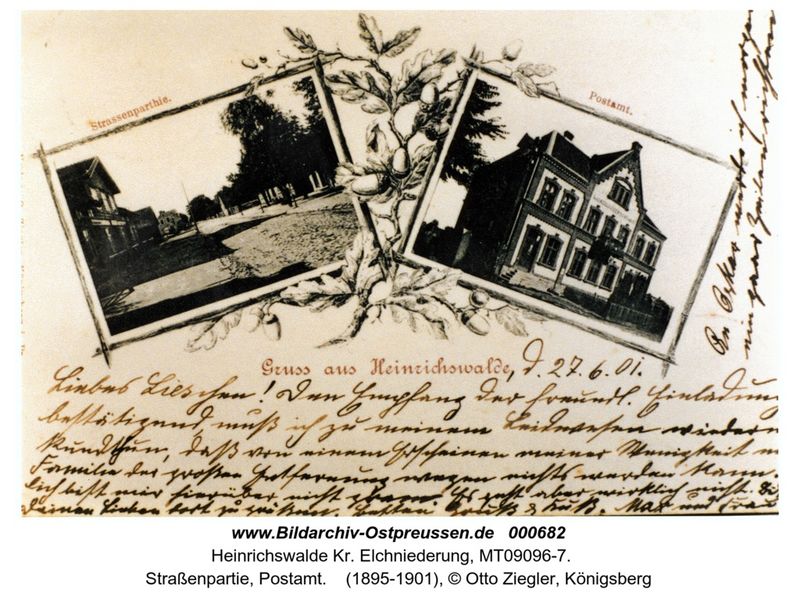 Strassenparthie.
Postamt.
Gruss aus Heinrichswalde, d. 27.6.01.
Liebes Lieschen! Den Empfang der freundl. Einladung
bestätigend, muß ich zu meinem Leidwesen wiederum
kundthun, daß von einem Erscheinen meiner Wenigkeit
Familie der großen Entfernung wegen nichts werden kann.
lich bist mir hierüber nicht Es geht aber wirklich nicht.
deinen Lieben dort zu grüßen. Gruß & Kuß. Max und Frau
Bei Oskar werde ich morgen
ein paar Zeilen
www.Bildarchiv-Ostpreussen.de 000682
Heinrichswalde Kr. Elchniederung, MT09096-7.
Straßenpartie, Postamt. (1895-1901), © Otto Ziegler, Königsberg